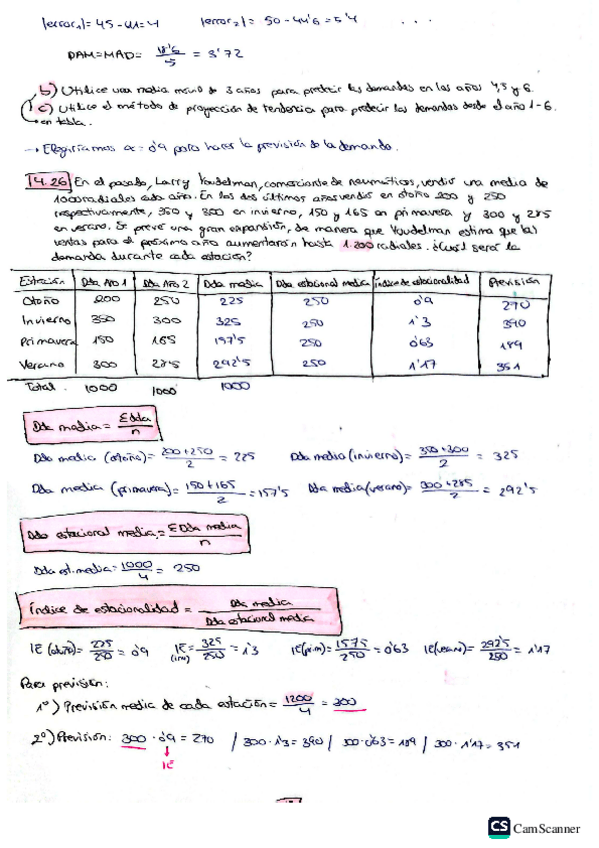 |error₁| = 45 - 41 = 4 |error₂| = 50 - 44'6 = 5'4 ...
DAM = MAD = 18'6/5 = 3'72
b) Utilice una media móvil de 3 años para predecir las demandas en los años 4, 5 y 6.
c) Utilice el método de proyección de tendencia para predecir las demandas desde el año 1-6.
en tabla.
→ Elegiríamos α = 0'9 para hacer la previsión de la demanda.
14.26 En el pasado, Larry Youdelman, comerciante de neumáticos, vendió una media de
1000 radiales cada año. En los dos últimos años vendió en otoño 200 y 250
respectivamente, 350 y 300 en invierno, 150 y 165 en primavera y 300 y 285
en verano. Se prevé una gran expansión, de manera que Youdelman estima que las
ventas para el próximo año aumentarán hasta 1.200 radiales. ¿Cuál será la
demanda durante cada estación?
Estación Dda Año 1 Dda Año 2 Dda media Dda estacional media Índice de estacionalidad Previsión
Otoño 200 250 225 250 0'9 270
Invierno 350 300 325 250 1'3 390
Primavera 150 165 157'5 250 0'63 189
Verano 300 285 292'5 250 1'17 351
Total. 1000 1000 1000
Dda media = Σdda/n
Dda media (otoño) = 200+250/2 = 225 Dda media (invierno) = 350+300/2 = 325
Dda media (primavera) = 150+165/2 = 157'5 Dda media (verano) = 300+285/2 = 292'5
Dda estacional media = ΣDda media/n
Dda est. media = 1000/4 = 250
Índice de estacionalidad = Dda media/Dda estacional media
IE (otoño) = 225/250 = 0'9 IE (inv) = 325/250 = 1'3 IE (prim) = 157'5/250 = 0'63 IE (verano) = 292'5/250 = 1'17
Para previsión:
1º) Previsión media de cada estación = 1200/4 = 300
2º) Previsión: 300 · 0'9 = 270 / 300 · 1'3 = 390 / 300 · 0'63 = 189 / 300 · 1'17 = 351
IE
CS CamScanner